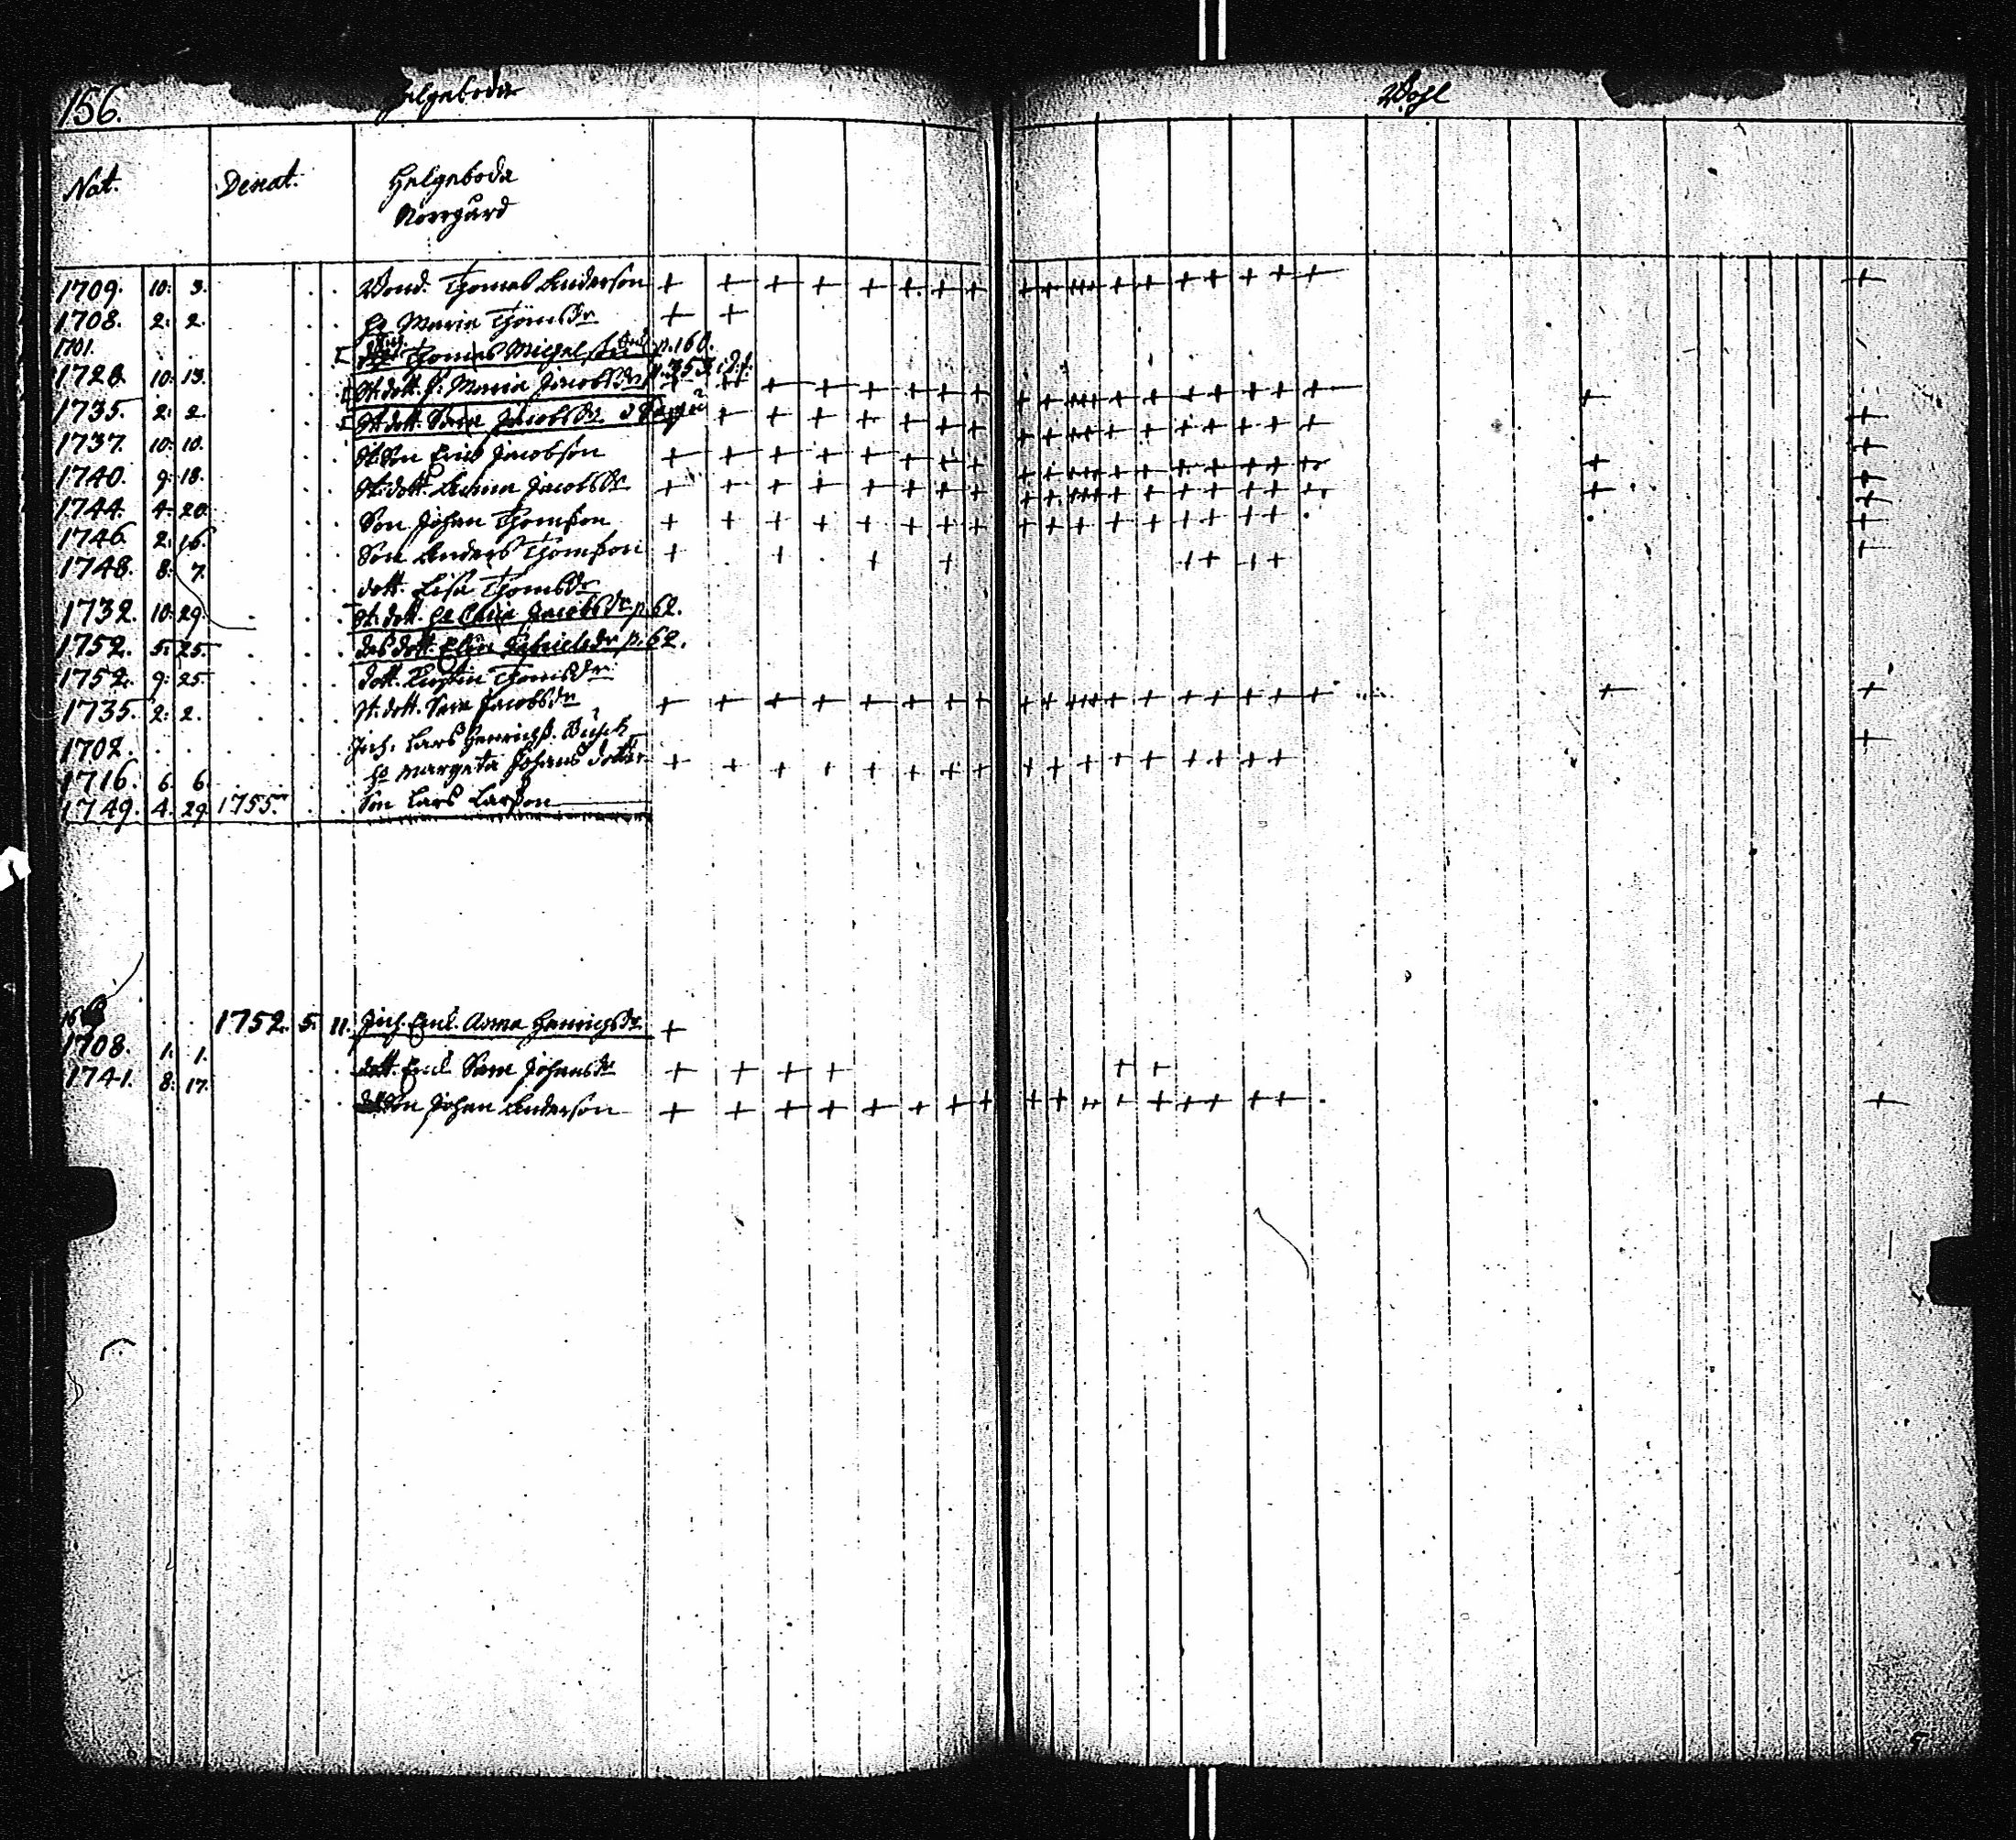 156. Helgeboda
Wohl
Nat. Denat. Helgeboda
Norrgård
1709. 10: 3. Bond. Thomas Anderson
1708. 2: 2. h: Maria Thomsdr
1701. Thomas Michelson p. 160.
1728. 10: 13. St. dott. h: Maria Jacobsdr p. 353
1735. 2: 2. St. dott. Sara Jacobsdr
1737. 10: 10. St. Son Erich Jacobson
1740. 9: 18. St. dott. Jacobsdr
1744. 4: 20. Son Johan Thomson
1746. 2: 16. Son Anders Thomson
1748. 8: 7. dott. Lisa Thomsdr
1732. 10: 29. St. dott. Jacobsdr p. 62.
1752. 5: 25. des dott. Elin Gabrielsdr p. 62.
1752. 9: 25. dott. Kirstin Thomsdr
1735. 2: 2. St. dott. Sara Jacobsdr
1702. Inh. Lars Henrichs. Busch
1716. 6. 6. h: Margeta Johans dotter
1749. 4. 29. 1755. Son Lars Larson
1752. 5. 11. Inh. Enk. Anna Henrichsdr
1708. 1. 1. dott. Enk. Sara Johansdr
1741. 8: 17. Son Johan Anderson